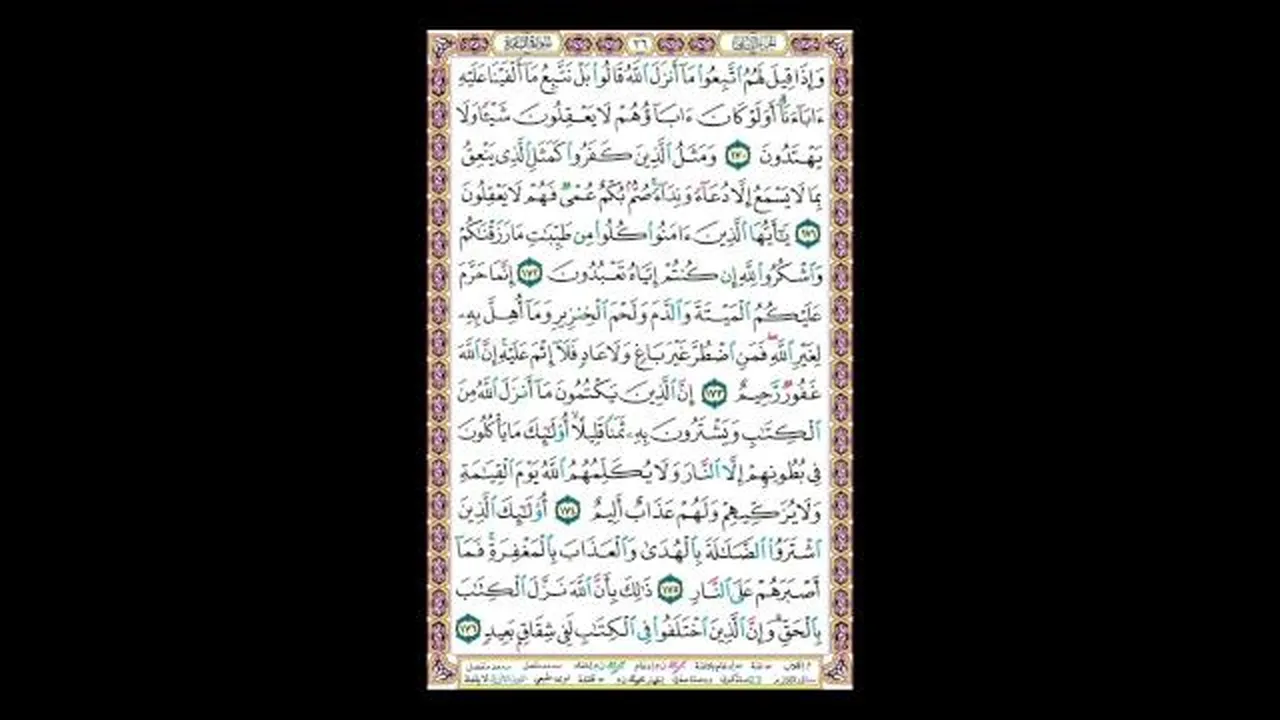 سورة البقرة ٢٦ الجزء الثاني
وَإِذَا قِيلَ لَهُمُ ٱتَّبِعُوا۟ مَآ أَنزَلَ ٱللَّهُ قَالُوا۟ بَلْ نَتَّبِعُ مَآ أَلْفَيْنَا عَلَيْهِ
ءَابَآءَنَآ ۗ أَوَلَوْ كَانَ ءَابَآؤُهُمْ لَا يَعْقِلُونَ شَيْـًٔا وَلَا
يَهْتَدُونَ ١٧٠ وَمَثَلُ ٱلَّذِينَ كَفَرُوا۟ كَمَثَلِ ٱلَّذِى يَنْعِقُ
بِمَا لَا يَسْمَعُ إِلَّا دُعَآءً وَنِدَآءً ۚ صُمٌّۢ بُكْمٌ عُمْىٌ فَهُمْ لَا يَعْقِلُونَ
١٧١ يَـٰٓأَيُّهَا ٱلَّذِينَ ءَامَنُوا۟ كُلُوا۟ مِن طَيِّبَـٰتِ مَا رَزَقْنَـٰكُمْ
وَٱشْكُرُوا۟ لِلَّهِ إِن كُنتُمْ إِيَّاهُ تَعْبُدُونَ ١٧٢ إِنَّمَا حَرَّمَ
عَلَيْكُمُ ٱلْمَيْتَةَ وَٱلدَّمَ وَلَحْمَ ٱلْخِنزِيرِ وَمَآ أُهِلَّ بِهِۦ
لِغَيْرِ ٱللَّهِ ۖ فَمَنِ ٱضْطُرَّ غَيْرَ بَاغٍ وَلَا عَادٍ فَلَآ إِثْمَ عَلَيْهِ ۚ إِنَّ ٱللَّهَ
غَفُورٌ رَّحِيمٌ ١٧٣ إِنَّ ٱلَّذِينَ يَكْتُمُونَ مَآ أَنزَلَ ٱللَّهُ مِنَ
ٱلْكِتَـٰبِ وَيَشْتَرُونَ بِهِۦ ثَمَنًا قَلِيلًا ۙ أُو۟لَـٰٓئِكَ مَا يَأْكُلُونَ
فِى بُطُونِهِمْ إِلَّا ٱلنَّارَ وَلَا يُكَلِّمُهُمُ ٱللَّهُ يَوْمَ ٱلْقِيَـٰمَةِ
وَلَا يُزَكِّيهِمْ وَلَهُمْ عَذَابٌ أَلِيمٌ ١٧٤ أُو۟لَـٰٓئِكَ ٱلَّذِينَ
ٱشْتَرَوُا۟ ٱلضَّلَـٰلَةَ بِٱلْهُدَىٰ وَٱلْعَذَابَ بِٱلْمَغْفِرَةِ ۚ فَمَآ
أَصْبَرَهُمْ عَلَى ٱلنَّارِ ١٧٥ ذَٰلِكَ بِأَنَّ ٱللَّهَ نَزَّلَ ٱلْكِتَـٰبَ
بِٱلْحَقِّ ۗ وَإِنَّ ٱلَّذِينَ ٱخْتَلَفُوا۟ فِى ٱلْكِتَـٰبِ لَفِى شِقَاقٍۭ بَعِيدٍ ١٧٦